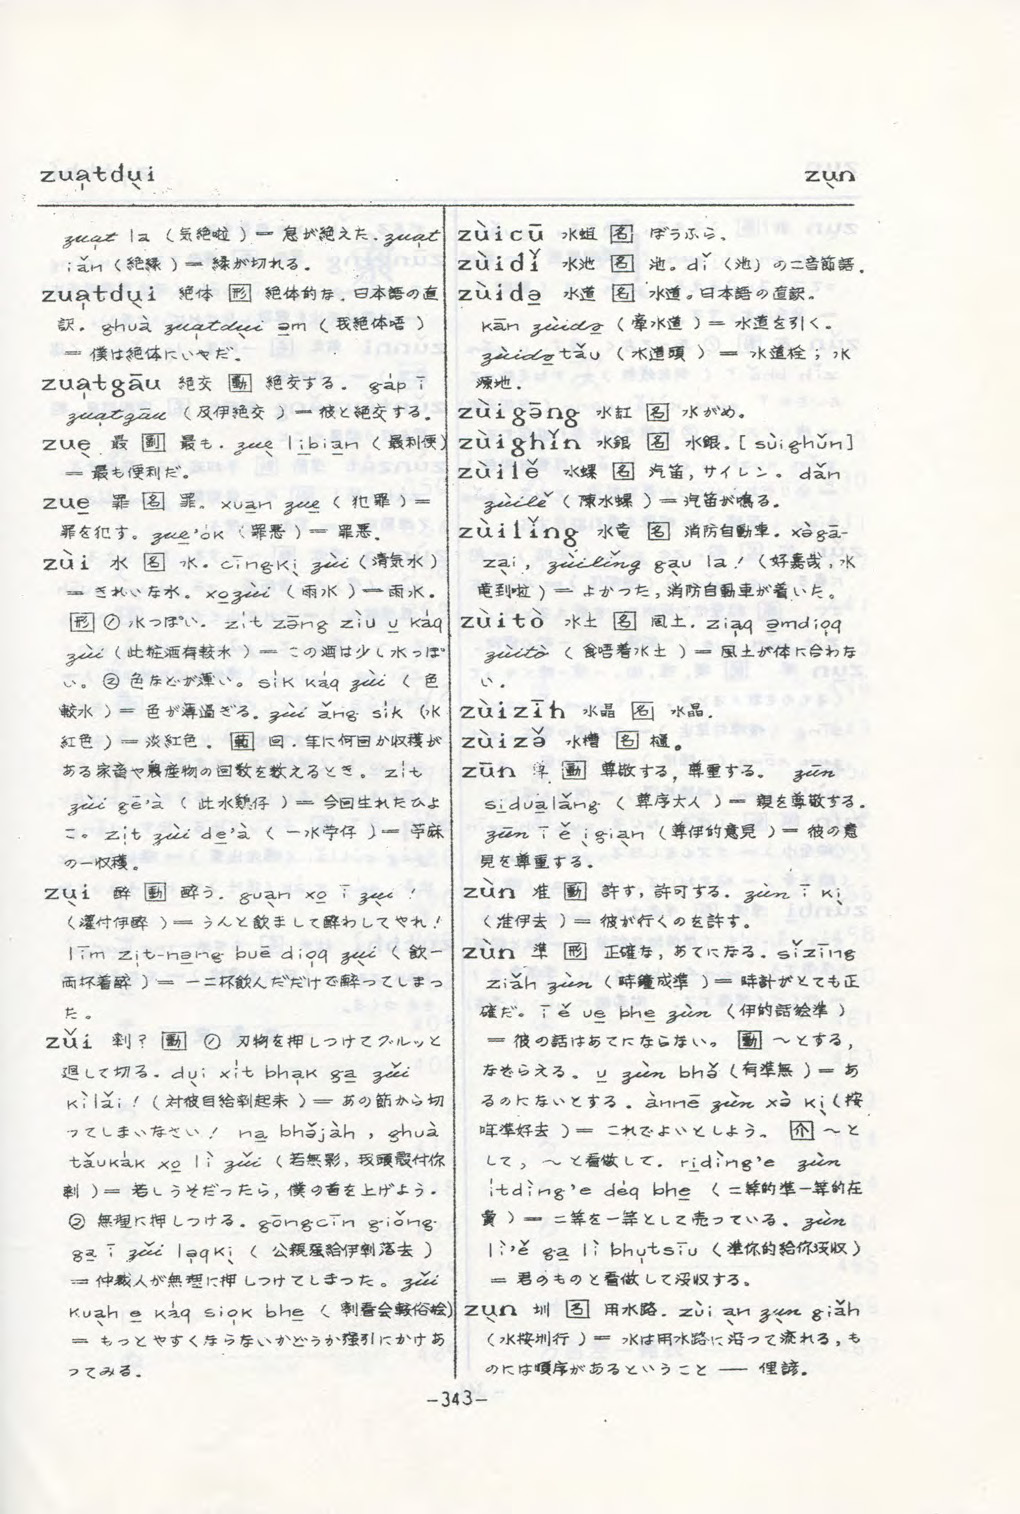 zua̍tdụi
zụn
zua̍t la (気絶啦) ＝ 息が絶えた. zua̍t
iǎn (絶縁) ＝ 縁が切れる.
zua̍tdụi 絶体 [形] 絶体的な. 日本語の直
訳. ghuà zua̍tdụi a̱m (我絶体唔)
＝ 僕は絶体にいやだ。
zua̍tgāu 絶交 [動] 絶交する. ga̍p ī
zua̍tgāu (及伊絶交) ＝ 彼と絶交する.
zuẹ 最 [副] 最も. zuẹ li̱bia̱n (最利便)
＝ 最も便利だ。
zue̱ 罪 [名] 罪。xua̱n zue̱ (犯罪) ＝
罪を犯す。zue̱'ok (罪悪) ＝ 罪悪.
zùi 水 [名] 水. cīngkị zùi (清気水)
＝ きれいな水。xo̱zùi (雨水) ＝ 雨水.
[形] ① 水っぽい. zi̍t zāng ziù u̱ kaq
zùi (此種酒有較水) ＝ この酒は少し水っぽ
い。② 色などが薄い。sik kaq zùi (色
較水) ＝ 色が薄過ぎる. zùi ǎng sik (水
紅色) ＝ 淡紅色. [範] 回. 年に何回か収穫が
ある家畜や農産物の回数を数えるとき。zit
zùi gē'à (此水鶏仔) ＝ 今回生れたひよ
こ。zi̍t zùi de̱'à (一水苧仔) ＝ 苧麻
の一収穫。
zụi 酔 [動] 酔う. guan xo ī zụi !
(灌付伊酔) ＝ うんと飲まして酔わしてやれ!
līm zi̍t-nang buē dioq zụi (飲一
両杯着酔) ＝ 一二杯飲んだだけで酔ってしまっ
た。
zǔi 剌? [動] ① 刃物を押しつけてグルッと
廻して切る. dụi xit bha̍k ga̱ zǔi
kìlǎi! (対彼目給剌起来) ＝ あの節から切
ってしまいなさい! na̱ bhǝ̌jàh, ghuà
tǎukak xo̱ lì zǔi (若無影, 我頭殻付你
剌) ＝ 若しうそだったら, 僕の首を上げよう.
② 無理に押しつける. gōngcīn giǒng
ga̱ ī zǔi la̍qkị (公親強給伊剌落去)
＝ 仲裁人が無理に押しつけてしまった。zǔi
kuạh e̱ kaq sio̍k bhe̱ (剌看会較俗𣍐)
＝ もっとやすくならないかどうか強引にかけあ
ってみる.
zùicū 水蛆 [名] ぼうふら.
zùidǐ 水池 [名] 池。dǐ (池) の二音節語.
zùidǝ̱ 水道 [名] 水道。日本語の直訳.
kān zùidǝ̱ (牽水道) ＝ 水道を引く。
zùidǝ̱tǎu (水道頭) ＝ 水道栓; 水
源地.
zùigāng 水缸 [名] 水がめ。
zùighǐn 水銀 [名] 水銀. [sùighǔn]
zùilě 水螺 [名] 汽笛, サイレン。dǎn
zùilě (陳水螺) ＝ 汽笛が鳴る.
zùilǐng 水竜 [名] 消防自動車. xǝ̀gā-
zại, zùilǐng gạu la! (好嘉哉, 水
竜到啦) ＝ よかった, 消防自動車が着いた。
zùitò 水土 [名] 風土. zia̍q a̱mdio̍q
zùitò (食唔着水土) ＝ 風土が体に合わな
い.
zùizīh 水晶 [名] 水晶.
zùizǝ̌ 水槽 [名] 樋。
zūn 尊 [動] 尊敬する, 尊重する. zūn
si̱dua̱lǎng (尊序大人) ＝ 親を尊敬する.
zūn ī ě ịgịan (尊伊的意見) ＝ 彼の意
見を尊重する.
zùn 准 [動] 許す, 許可する. zùn ī kị
(准伊去) ＝ 彼が行くのを許す。
zùn 準 [形] 正確な, あてになる. sǐzīng
ziǎh zùn (時鐘成準) ＝ 時計がとても正
確だ。ī ě ue̱ bhe̱ zùn (伊的話𣍐準)
＝ 彼の話はあてにならない。[動] 〜とする,
なぞらえる。u̱ zùn bhǝ̌ (有準無) ＝ あ
るのにないとする. ànnē zùn xǝ̀ kị (按
呢準好去) ＝ これでよいとしよう。[介] 〜と
して, 〜と看做して. ri̱dìng'e zùn
itdìng'e deq bhe̱ (二等的準一等的在
賣) ＝ 二等を一等として売っている. zùn
lì'ě ga̱ lì bhu̍tsiū (準你的給你没収)
＝ 君のものと看做して没収する。
zụn 圳 [名] 用水路. zùi ạn zụn giǎh
(水按圳行) ＝ 水は用水路に沿って流れる, も
のには順序があるということ — 俚諺.
-343-